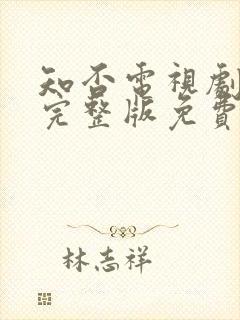 知否電視劇
完整版免費
林志祥